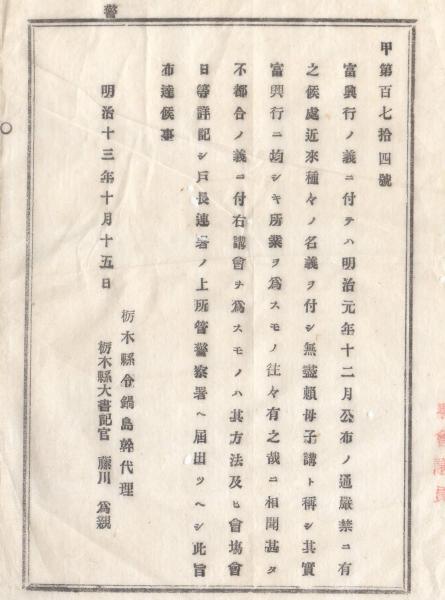 警
甲第百七拾四號
富興行ノ義ニ付テハ明治元年十二月公布ノ通嚴禁ニ有
之候處近來種々ノ名義ヲ付シ無盡頼母子講ト稱シ其實
富興行ニ均シキ所業ヲ爲スモノ往々有之哉ニ相聞甚タ
不都合ノ義ニ付右講會ヲ爲スモノハ其方法及ヒ會塲會
日等詳記シ戸長連署ノ上所管警察署ヘ届出ツヘシ此旨
布達候事
明治十三年十月十五日
栃木縣令鍋島幹代理
栃木縣大書記官 藤川 爲親